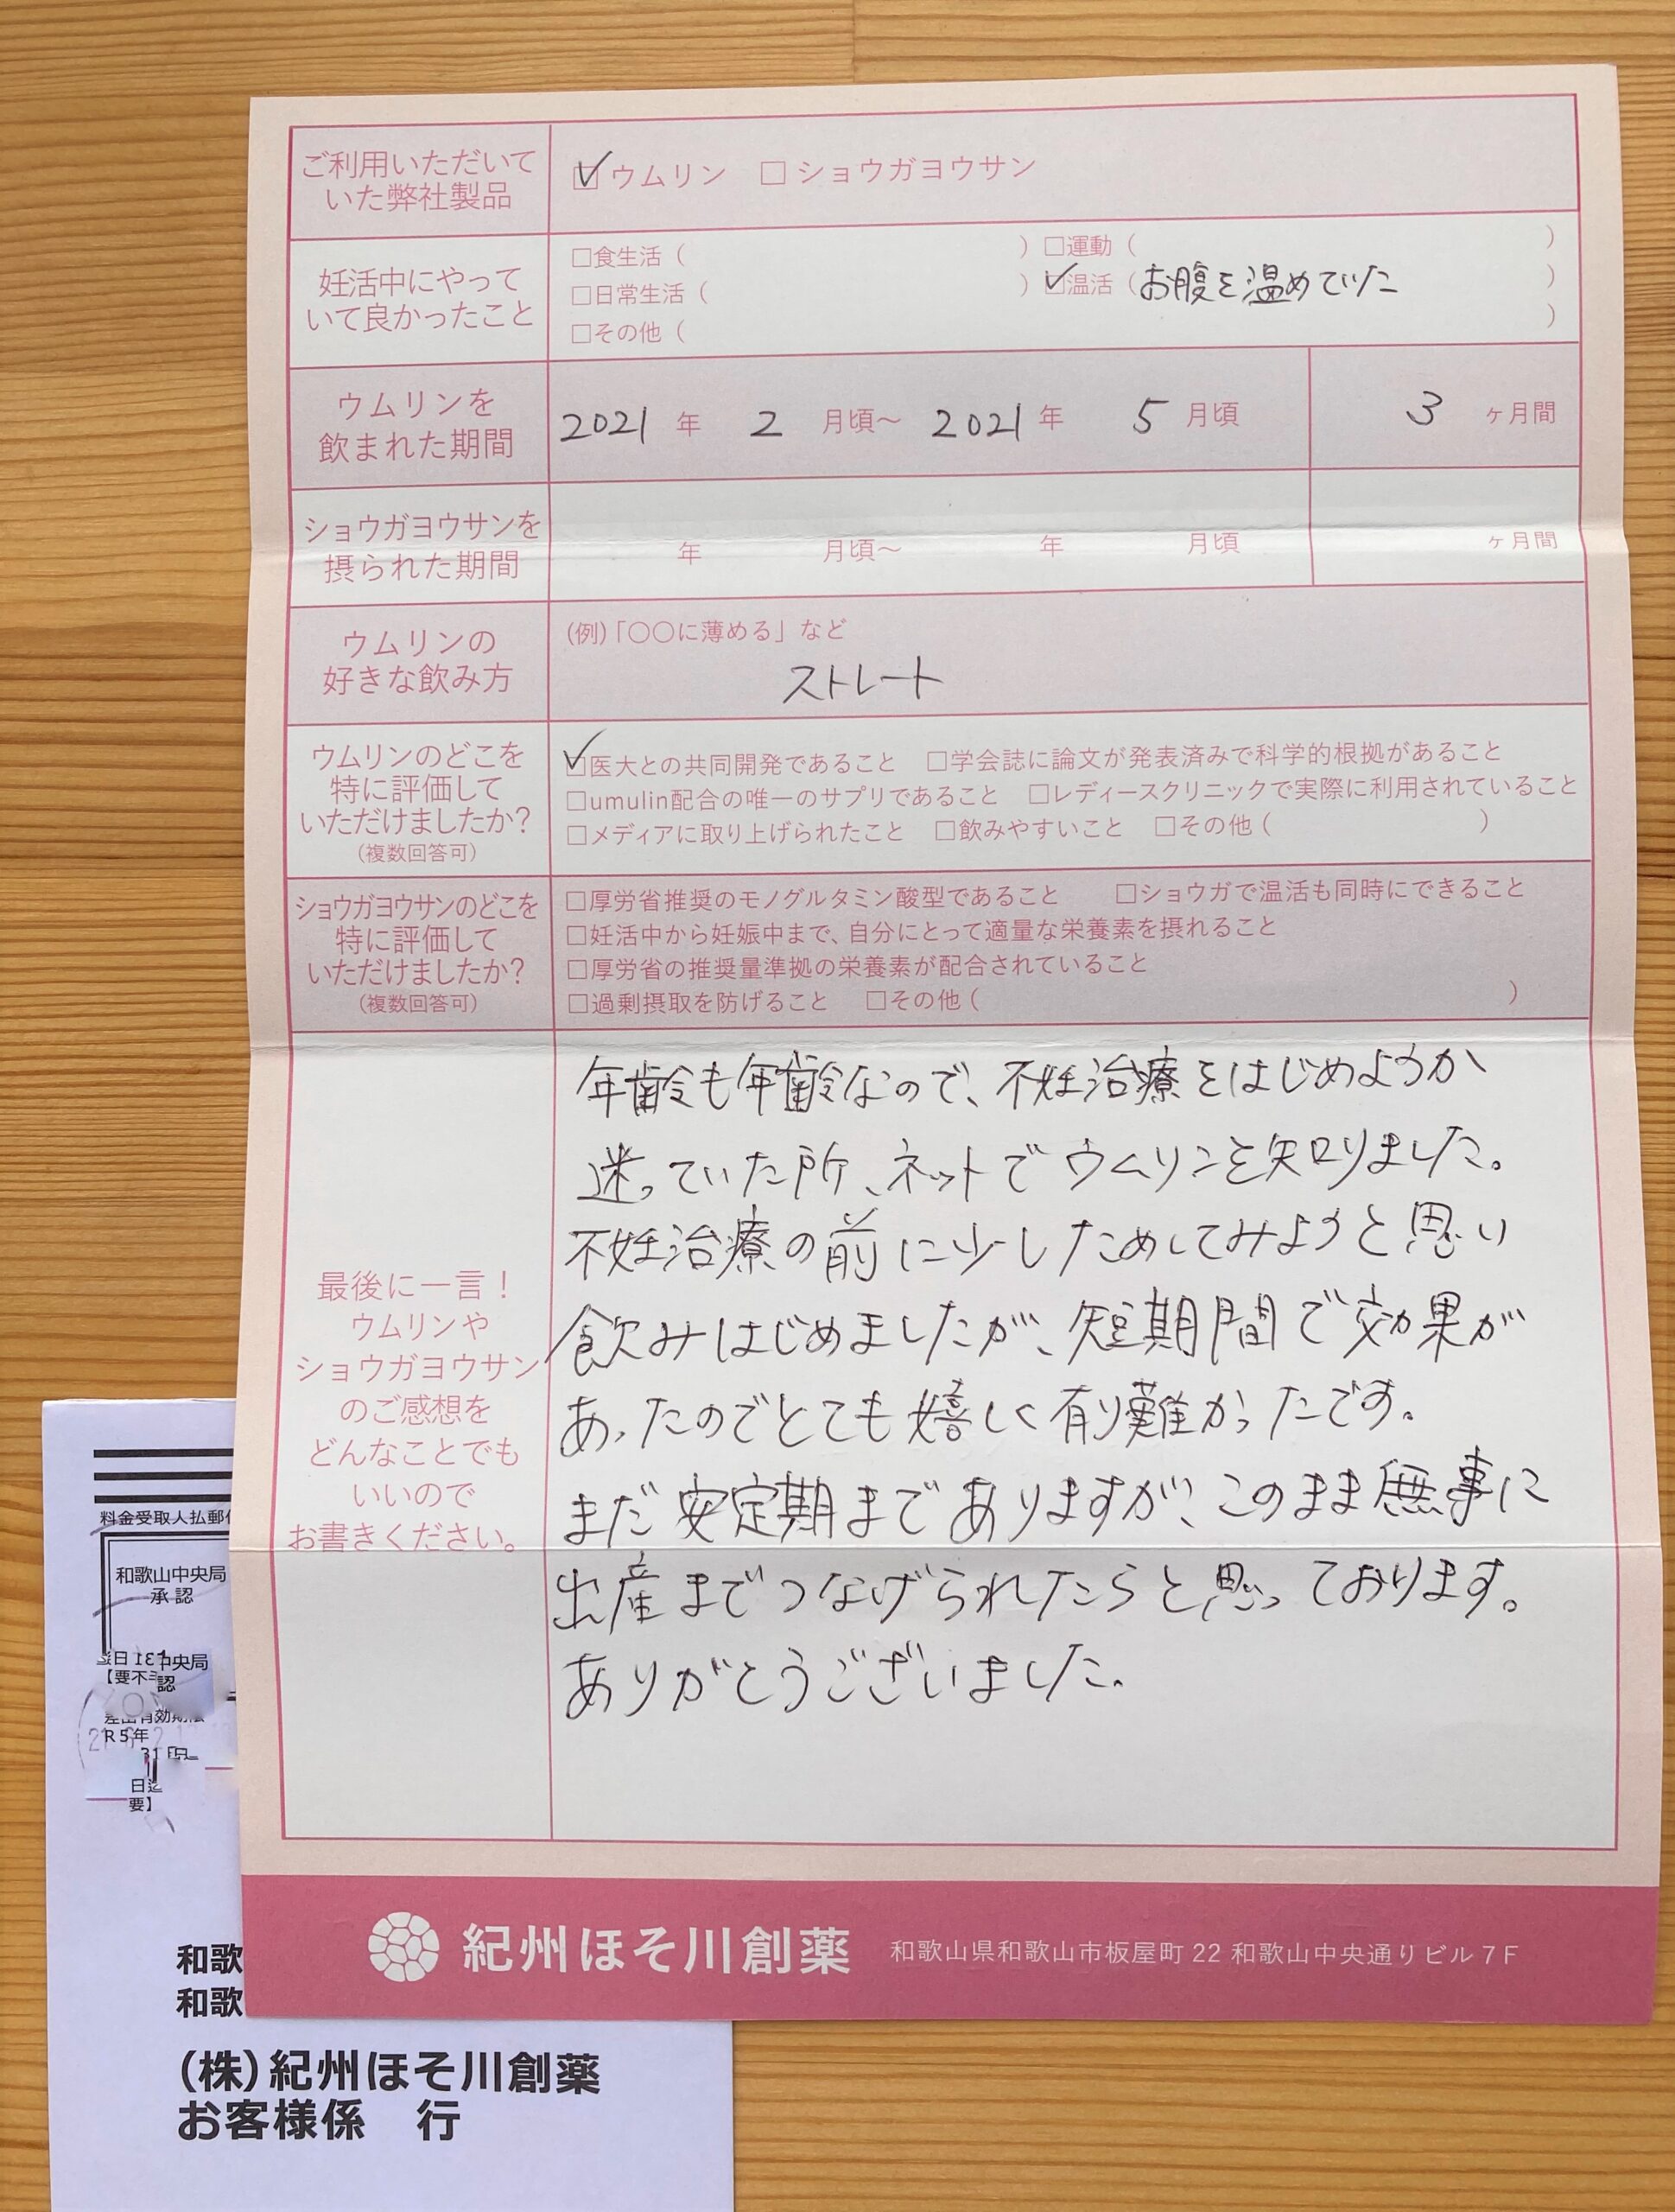 ご利用いただいて
いた弊社製品
☑ウムリン □ショウガヨウサン
妊活中にやって
いて良かったこと
□食生活（ ）□運動（ ）
□日常生活（ ）☑温活（お腹を温めていた ）
□その他（ ）
ウムリンを
飲まれた期間
2021 年 2 月頃～ 2021 年 5 月頃 3 ヶ月間
ショウガヨウサンを
摂られた期間
年 月頃～ 年 月頃 ヶ月間
ウムリンの
好きな飲み方
(例)「〇〇に薄める」など
ストレート
ウムリンのどこを
特に評価して
いただけましたか？
（複数回答可）
☑医大との共同開発であること □学会誌に論文が発表済みで科学的根拠があること
□umulin配合の唯一のサプリであること □レディースクリニックで実際に利用されていること
□メディアに取り上げられたこと □飲みやすいこと □その他（ ）
ショウガヨウサンのどこを
特に評価して
いただけましたか？
（複数回答可）
□厚労省推奨のモノグルタミン酸型であること □ショウガで温活も同時にできること
□妊活中から妊娠中まで、自分にとって適量な栄養素を摂れること
□厚労省の推奨量準拠の栄養素が配合されていること
□過剰摂取を防げること □その他（ ）
最後に一言！
ウムリンや
ショウガヨウサン
のご感想を
どんなことでも
いいので
お書きください。
年齢も年齢なので、不妊治療をはじめようか
迷っていた所、ネットでウムリンを知りました。
不妊治療の前に少しためしてみようと思い
飲みはじめましたが、短期間で効果が
あったのでとても嬉しく有り難かったです。
まだ安定期までありますが、このまま無事に
出産までつなげられたらと思っております。
ありがとうございました。
紀州ほそ川創薬 和歌山県和歌山市板屋町 22 和歌山中央通りビル 7 F
料金受取人払郵
和歌山中央局
承認
中央局
認
R5年
和歌
和歌
(株)紀州ほそ川創薬
お客様係 行